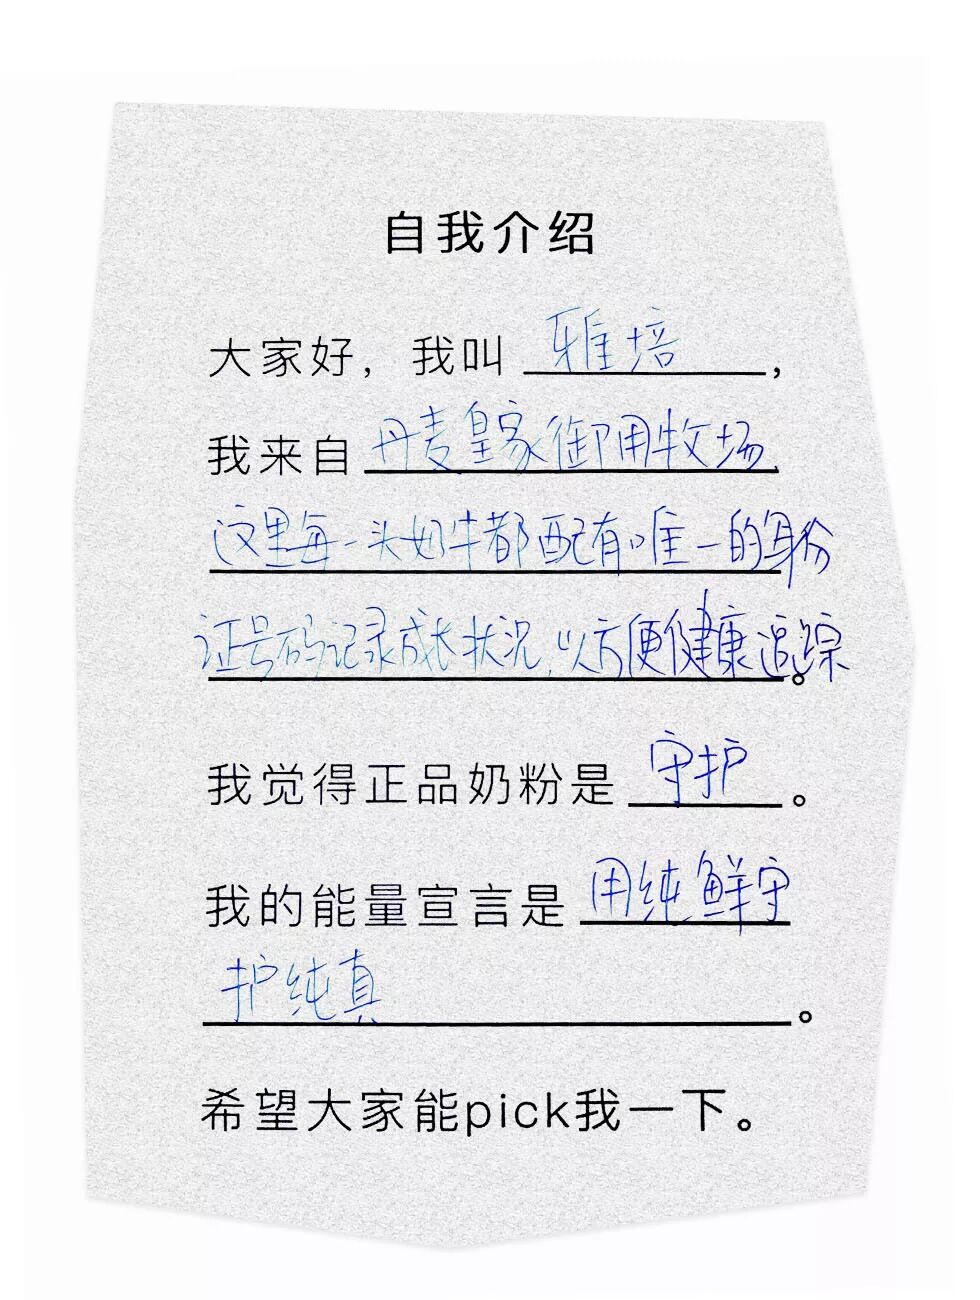 自我介绍
大家好，我叫 雅培，
我来自 丹麦皇家御用牧场.
这里每一头奶牛都配有唯一的身份
证号码记录成长状况,以方便健康追踪。
我觉得正品奶粉是 守护。
我的能量宣言是 用纯鲜守
护纯真。
希望大家能pick我一下。